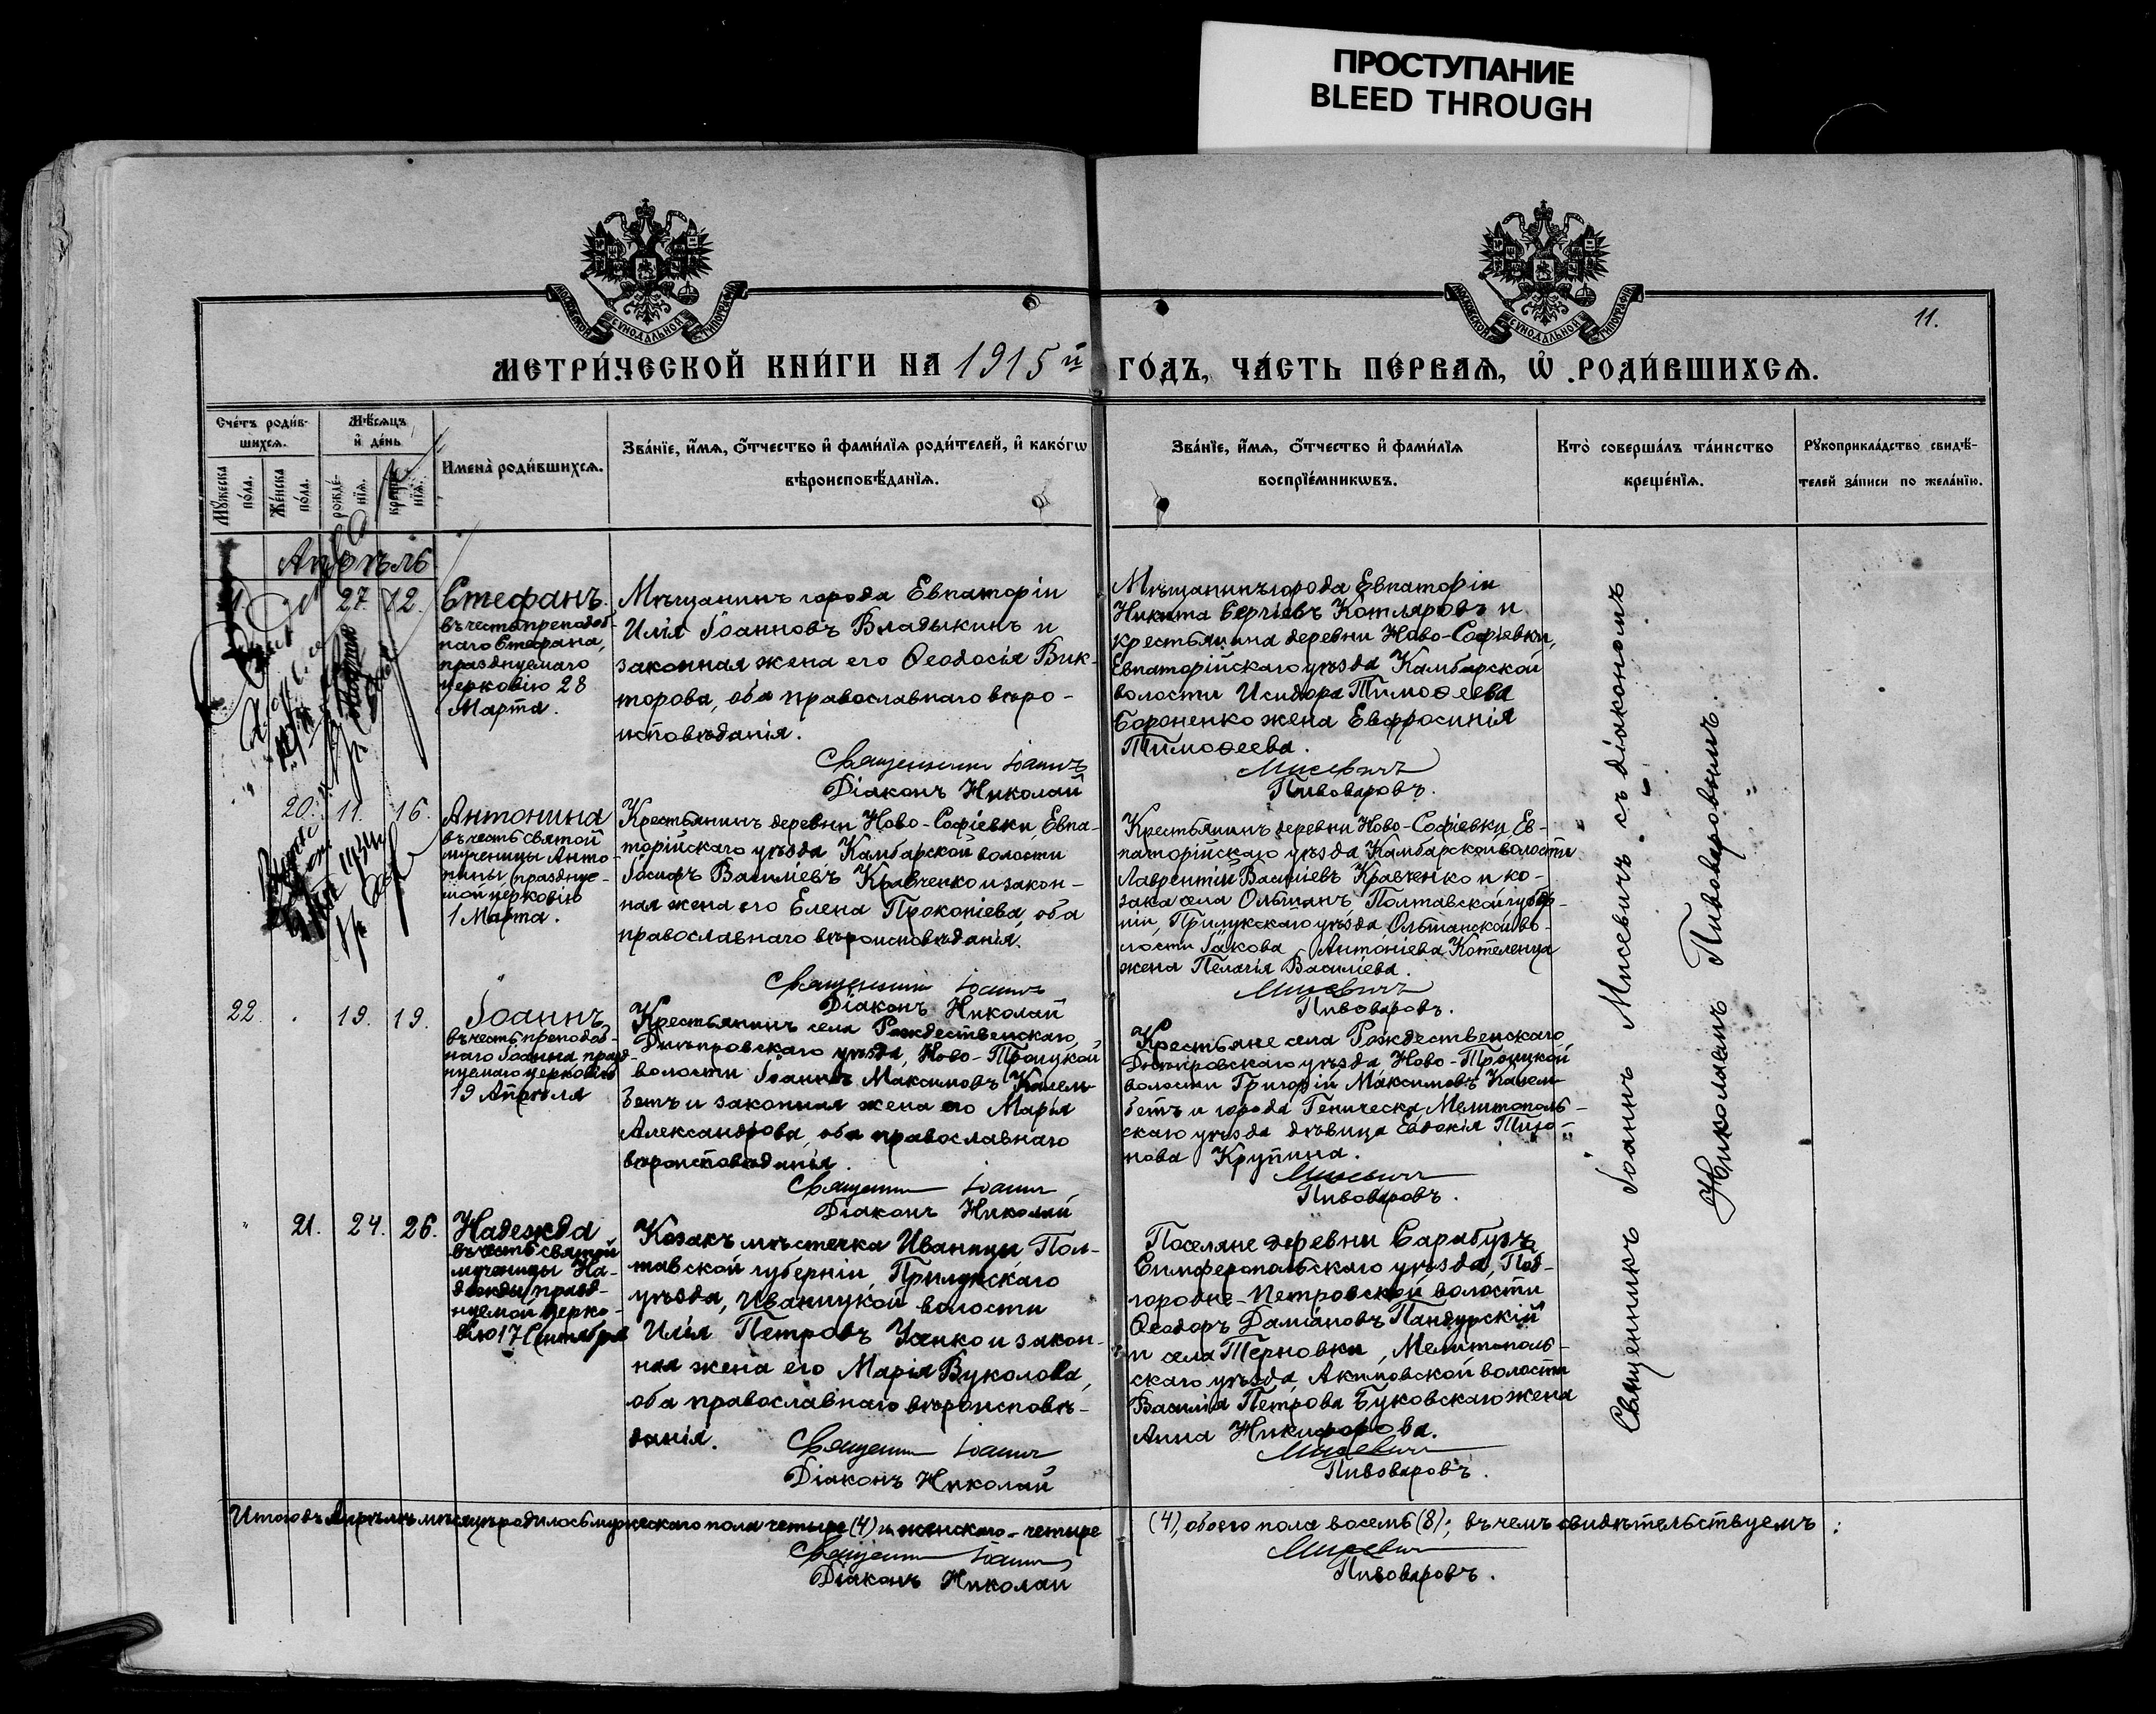 ПРОСТУПАНИЕ
BLEED THROUGH
МОСКОВСКОЙ СѴНОДАЛЬНОЙ ТИПОГРАФІИ
МОСКОВСКОЙ СѴНОДАЛЬНОЙ ТИПОГРАФІИ
11.
МЕТРИ́ЧЕСКОЙ КНИ́ГИ НА 1915й ГО́ДЪ, ЧА́СТЬ ПЕ́РВАѦ, Ѡ҆ РОДИ́ВШИХСѦ.
Сче́тъ роди́в-
шихсѧ.
Мѣ́сѧцъ
и҆ де́нь
Мꙋ́жеска
по́ла.
Же́нска
по́ла.
рожде́-
нїѧ.
креще́-
нїѧ.
Имена̀ роди́вшихсѧ.
Зва́нїе, и҆́мѧ, ѻ҆́тчество и҆ фами́лїѧ роди́телей, и҆ како́гѡ
вѣроисповѣ́данїѧ.
Зва́нїе, и҆́мѧ, ѻ҆́тчество и҆ фами́лїѧ
воспрїе́мникѡвъ.
Кто̀ соверша́лъ та́инство
креще́нїѧ.
Рꙋкоприкла́дство свидѣ́-
телей за́писи по жела́нїю.
Апрѣль
27. 12.
Стефанъ.
въ честь преподоб-
наго Стефана,
празднуемаго
церковію 28
Марта.
Мѣщанинъ города Евпаторіи
Илія Іоанновъ Владыкинъ и
законная жена его Ѳеодосія Вик-
торова, оба православнаго вѣро-
исповѣданія.
Священникъ Іоаннъ
Діаконъ Николай
Мѣщанинъ города Евпаторіи
Никита Сергіевъ Котляровъ и
крестьянина деревни Ново-Софіевки,
Евпаторійскаго уѣзда Камбарской
волости Исидора Тимоѳеева
Бороненко жена Евфросинія
Тимоѳеева.
Мисевичъ
Пивоваровъ.
20. 11. 16.
Антонина
въ честь святой
мученицы Анто-
нины, праздне-
мой церковію
1 Марта.
Крестьянинъ деревни Ново-Софіевки, Евпа-
торійскаго уѣзда, Камбарской волости
Іосифъ Василіевъ Кравченко и закон-
ная жена его Елена Прокопіева, оба
православнаго вѣроисповѣданія.
Священникъ Іоаннъ
Діаконъ Николай
Крестьянинъ деревни Ново-Софіевки, Ев-
паторійскаго уѣзда, Камбарской волости
Лаврентій Василіевъ Кравченко и ко-
зака села Ольшанъ Полтавской губер-
ніи, Прилукскаго уѣзда Ольшанской во-
лости Іакова Антоніева Котеленца
жена Пелагія Василіева.
Мисевичъ
Пивоваровъ.
22. 19. 19.
Іоаннъ
въ честь преподоб-
наго Іоанна празд-
нуемаго церковію
19 Апрѣля
Крестьянинъ села Рождественскаго,
Днѣпровскаго уѣзда, Ново-Троицкой
волости Іоаннъ Максимовъ Кагель-
бетъ и законная жена его Марія
Александрова, оба православнаго
вѣроисповѣданія.
Священникъ Іоаннъ
Діаконъ Николай
Крестьяне села Рождественскаго
Днѣпровскаго уѣзда, Ново-Троицкой
волости Григорій Максимовъ
и города Геническа, Мелитополь-
скаго уѣзда дѣвица Евдокія
Крупина.
Мисевичъ
Пивоваровъ.
21. 24. 26.
Надежда
въ честь святой
мученицы На-
дежды, празд-
нуемой церко-
вію 17 Сентября
Козакъ мѣстечка Иваницы Пол-
тавской губерніи, Прилукскаго
уѣзда, Иваницкой волости
Илія Петровъ Уапко и закон-
ная жена его Марія Вуколова,
оба православнаго вѣроисповѣ-
данія.
Священникъ Іоаннъ
Діаконъ Николай
Поселяне деревни Сарабузъ,
Симферопольскаго уѣзда, Под-
городне-Петровской волости
Ѳеодоръ Даміановъ Пандурскій
и села Терновки, Мелитополь-
скаго уѣзда, Акимовской волости
Василія Петрова Буковскаго жена
Анна Никифорова.
Мисевичъ
Пивоваровъ.
Священникъ Іоаннъ Мисевичъ съ діакономъ
Николаемъ Пивоваровымъ.
Итого въ Апрѣлѣ мѣсяцѣ родилось мужескаго пола четыре (4) и женскаго - четыре (4), обоего пола восемь (8); въ чемъ свидѣтельствуемъ:
Священникъ Іоаннъ Мисевичъ
Діаконъ Николай Пивоваровъ.